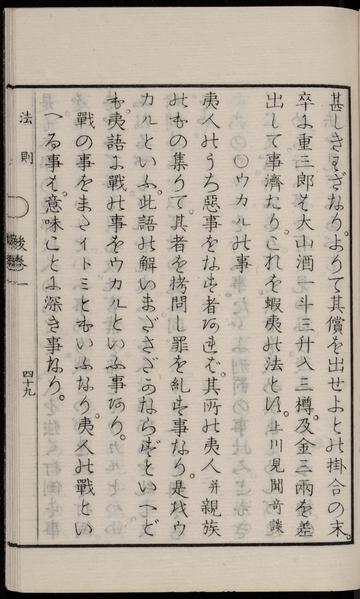 甚しきわざなり。よりて其償を出せよとの掛合の末。
卒に重三郎は大山酒一斗三升入三樽。及金三兩を差
出して事濟たり。これを蝦夷の法といふ。上川見聞奇談
○ウカルの事
夷人のうち惡事をなす者あれば。其所の夷人并親族
のもの集りて。其者を拷問し罪を糺す事なり。是をウ
カルといふ。此語の解いまださだかならずといへど
も。夷語に戰の事をウカルといふ事あり。
戰の事をまたイトミともいふなり。夷人の戰とい
へる事は。意味ことに深き事なり。
法則
後卷一
四十九